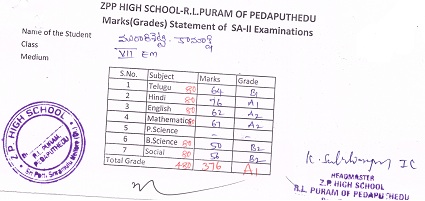 ZPP HIGH SCHOOL-R.L.PURAM OF PEDAPUTHEDU
Marks(Grades) Statement of SA-II Examinations
Name of the Student
Class VII EM
Medium
S.No. Subject Marks Grade
1 Telugu 80 64 B1
2 Hindi 80 76 A1
3 English 80 62 A2
4 Mathematics 80 67 A2
5 P.Science - -
6 B.Science 80 50 B2
7 Social 80 56 B2
Total Grade 480 376 A1
Z.P. HIGH SCHOOL
R.L. PURAM
PEDAPUTHEDU
HEADMASTER
Z.P HIGH SCHOOL
R.L. PURAM OF PEDAPUTHEDU